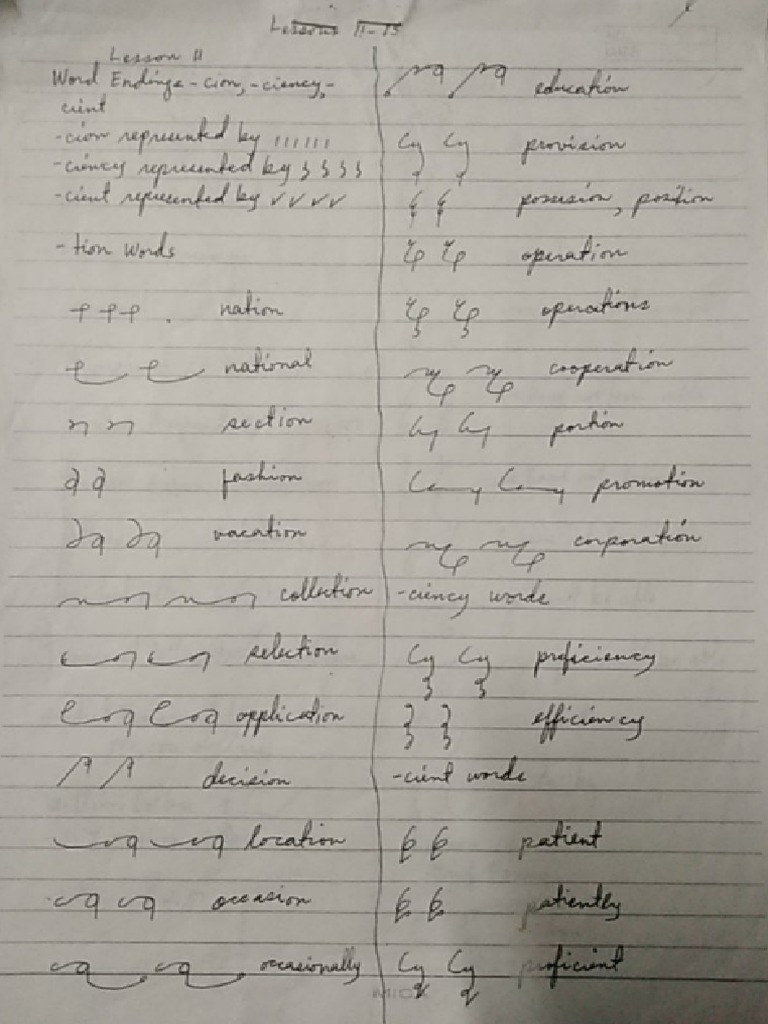 Lessons 11-15
Lesson 11
Word Endings -cion, -ciency, -
cient
-cion represented by
-ciency represented by
-cient represented by
-tion words
nation
national
section
fashion
vacation
collection
selection
application
decision
location
occasion
occasionally
education
provision
possesion, position
operation
operations
cooperation
portion
promotion
corporation
-ciency words
proficiency
efficiency
-cient words
patient
patiently
proficient